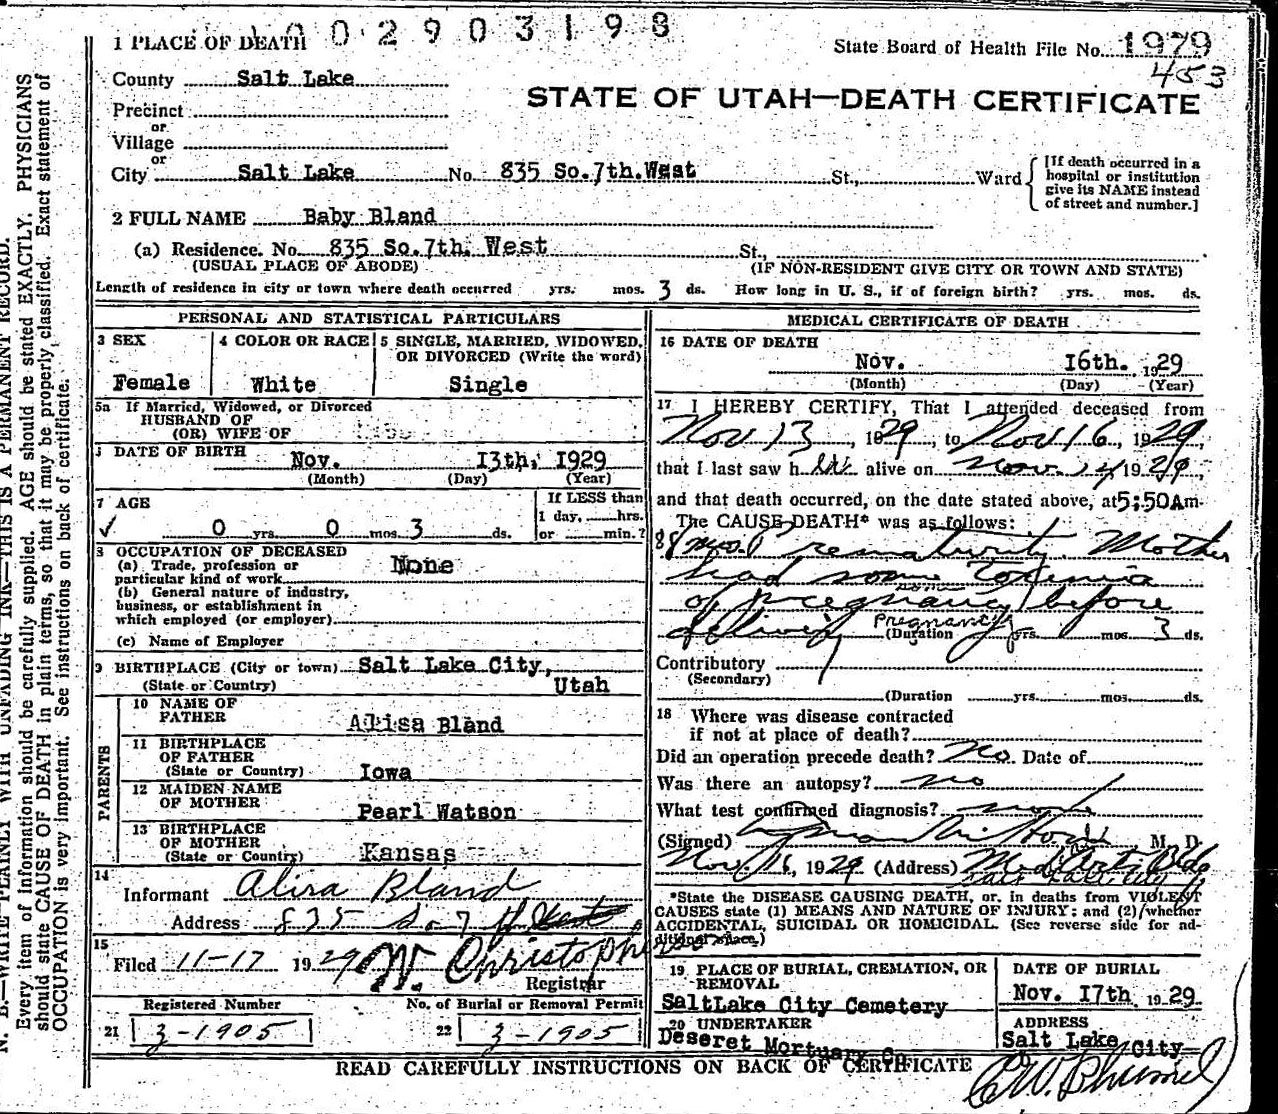 002903198
1 PLACE OF DEATH
State Board of Health File No. 1979
453
County Salt Lake
STATE OF UTAH—DEATH CERTIFICATE
Precinct
or
Village
or
City Salt Lake No. 835 So. 7th. West St., Ward
[If death occurred in a
hospital or institution
give its NAME instead
of street and number.]
2 FULL NAME Baby Bland
(a) Residence. No. 835 So. 7th. West St.,
(USUAL PLACE OF ABODE) (IF NON-RESIDENT GIVE CITY OR TOWN AND STATE)
Length of residence in city or town where death occurred yrs. mos. 3 ds. How long in U. S., if of foreign birth? yrs. mos. ds.
PERSONAL AND STATISTICAL PARTICULARS
3 SEX
Female
4 COLOR OR RACE
White
5 SINGLE, MARRIED, WIDOWED,
OR DIVORCED (Write the word)
Single
5a If Married, Widowed, or Divorced
HUSBAND OF
(OR) WIFE OF
DATE OF BIRTH
Nov. 13th, 1929
(Month) (Day) (Year)
7 AGE
✓ 0 yrs. 0 mos. 3 ds.
If LESS than
1 day, hrs.
or min.?
8 OCCUPATION OF DECEASED
(a) Trade, profession or
particular kind of work None
(b) General nature of industry,
business, or establishment in
which employed (or employer)
(c) Name of Employer
9 BIRTHPLACE (City or town) Salt Lake City,
(State or Country) Utah
PARENTS
10 NAME OF
FATHER Alisa Bland
11 BIRTHPLACE
OF FATHER
(State or Country) Iowa
12 MAIDEN NAME
OF MOTHER Pearl Watson
13 BIRTHPLACE
OF MOTHER
(State or Country) Kansas
14
Informant Alisa Bland
Address 835 So 7th West
15
Filed 11-17 1929 W. Christopherson
Registrar
Registered Number No. of Burial or Removal Permit
21 3-1905 22 3-1905
MEDICAL CERTIFICATE OF DEATH
16 DATE OF DEATH
Nov. 16th. 1929
(Month) (Day) (Year)
17 I HEREBY CERTIFY, That I attended deceased from
Nov 13, 1929, to Nov 16, 1929,
that I last saw h alive on Nov. 14 1929,
and that death occurred, on the date stated above, at 5:50Am.
The CAUSE DEATH* was as follows:
8 mos. Prematurity. Mother
had some Toxemia
of pregnancy before
delivery pregnancy
(Duration yrs. mos. 3 ds.
Contributory
(Secondary)
(Duration yrs. mos. ds.
18 Where was disease contracted
if not at place of death?
Did an operation precede death? No. Date of
Was there an autopsy? no
What test confirmed diagnosis?
(Signed) M. D.
Nov. 16, 1929 (Address) Med Arts Bldg
Salt Lake City
*State the DISEASE CAUSING DEATH, or, in deaths from VIOLENT
CAUSES state (1) MEANS AND NATURE OF INJURY; and (2) whether
ACCIDENTAL, SUICIDAL OR HOMICIDAL. (See reverse side for ad-
ditional space.)
19 PLACE OF BURIAL, CREMATION, OR
REMOVAL
SaltLake City Cemetery
DATE OF BURIAL
Nov. 17th 1929
20 UNDERTAKER
Deseret Mortuary Co
ADDRESS
Salt Lake City
READ CAREFULLY INSTRUCTIONS ON BACK OF CERTIFICATE
N. B.—WRITE PLAINLY WITH UNFADING INK—THIS IS A PERMANENT RECORD.
Every item of information should be carefully supplied. AGE should be stated EXACTLY. PHYSICIANS
should state CAUSE OF DEATH in plain terms, so that it may be properly classified. Exact statement of
OCCUPATION is very important. See instructions on back of certificate.